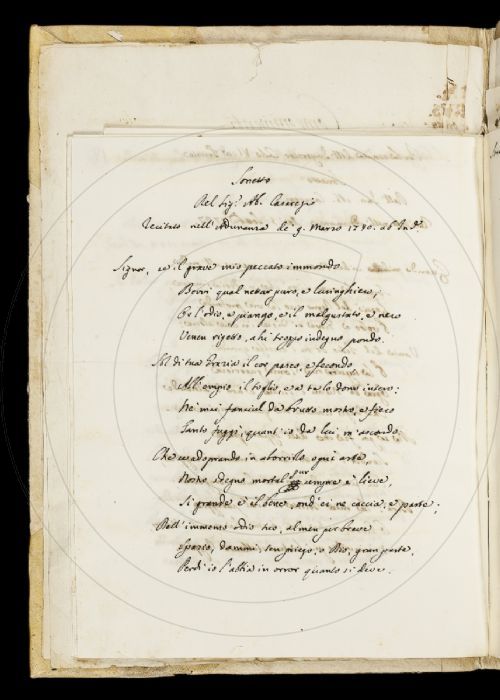 Sonetto
Del Sig.r Ab. Casaregi
Recitato nell'Adunanza de' 9. Marzo 1740. ab Ind.e
Signor, se il grave mio peccato immondo
Bevvi qual nettar puro, e lusinghiero,
Or l'odio, e piango, e il malgustato, e nero
Venen rigetto, ahi troppo indegno pondo.
Al di tua Grazia il cor parco, e fecondo
All'empio il toglie, e a te lo dono intero:
Nè mai fanciul da brutto mostro, e fiero
Tanto fuggì, quant'io da lui m'ascondo.
Che ce adoprando in aborrillo ogni arte,
Nostro sdegno mortal pur sempre è lieve,
Si grande è il bene, ond'ei ne caccia, e parte:
Dell'immenso odio tuo, almen per breve
Spazio, dammi, ten priego, o Dio, gran parte,
Perch'io l'abbia in orror quanto si deve.